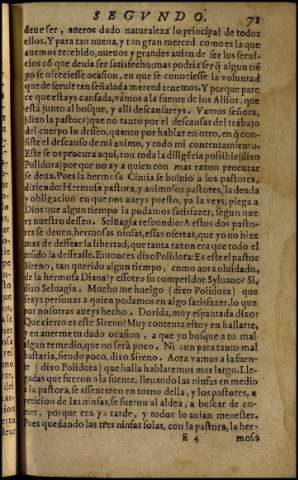 SEGVNDO. 72
deue ser, aueros dado naturaleza lo principal de todos
ellos. Y para tan nueua, y tan gran merced como es la que
auemos recebido, nueuos y grandes auian de ser los serui-
cios cõ que deuia ser satisfecho: mas podria ser q̃ algun tiẽ
po se ofreciesse ocasion, en que se conociesse la voluntad
que de seruir tan señalada merced tenemos. Y porque pare
ce que estays cansada, vamos a la fuente de los Alisos, que
está junto al bosque, y alli descansareys. Vamos señora,
(dixo la pastora) que no tanto por el descansar del trabajo
del cuerpo lo desseo, quanto por hablar en otro, en q̃ con
siste el descanso de mi animo, y todo mi contentamiento.
Esse se os procurara aqui, con toda la diligẽcia possible (dixo
Polidora) porque no ay a quien con mas razon procurar
se deua. Pues la hermosa Cintia se boluio a los pastores,
diziendo: Hermosa pastora, y animosos pastores, la deuda
y obligacion en que nos aueys puesto, ya la veys, plega a
Dios que algun tiempo la podamos satisfazer, segun que
es nuestro desseo. Seluagia respondio: A estos dos pasto-
res se deuen, hermosas ninfas, essas ofertas, que yo no hize
mas de dessear la libertad, que tanta razon era que todo el
mũdo la desseasse. Entonces dixo Polidora: Es este el pastor
Sireno, tan querido algun tiempo, como aora oluidado,
de la hermosa Diana? y essotro su competidor Syluano? Si,
dixo Seluagia. Mucho me huelgo (dixo Polidora) que
seays personas a quien podamos en algo satisfazer, lo que
por nosotras aueys hecho. Dorida, muy espantada dixo:
Que cierto es este Sireno? Muy contenta estoy en hallarte,
y en auerme tu dado ocasion, a que yo busque a tu mal
algun remedio, que no será poco. Ni aun para tanto mal
bastaria, siendo poco, dixo Sireno. Aora vamos a la fuen-
te (dixo Polidora) que halla hablaremos mas largo. Lle-
gadas que fueron a la fuente, lleuando las ninfas en medio
a la pastora, se assentaron en torno della, y los pastores, a
peticion de las ninfas, se fueron al aldea, a buscar de co-
mer, porque era ya tarde, y todos lo auian menester.
Pues quedando las tres ninfas solas, con la pastora, la her-
E 4 mosa